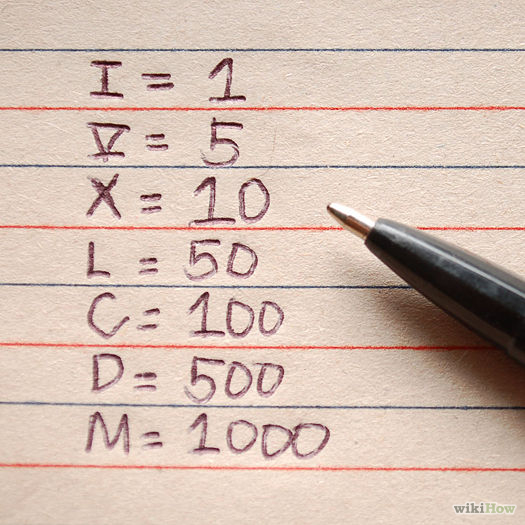 I = 1
V = 5
X = 10
L = 50
C = 100
D = 500
M = 1000
wikiHow